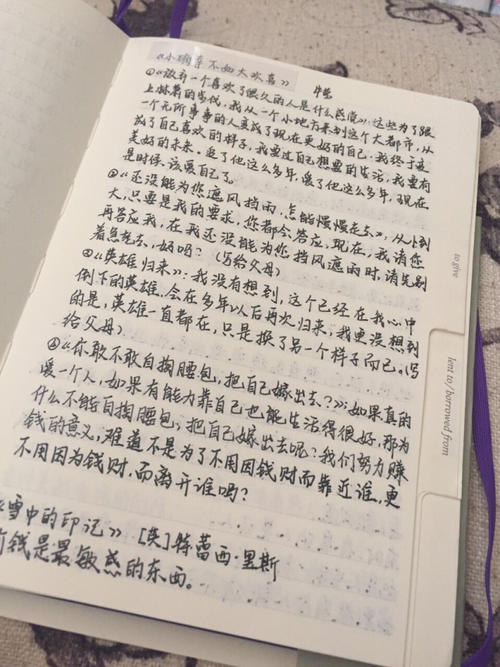 《小确幸不如大欢喜》
①《放弃一个喜欢了很久的人是什么感觉》：这些为了跟
上林萧的步伐，我从一个小地方来到这个大都市，从
一个无所事事的人变成了现在更好的自己，我终于变
成了自己喜欢的样子，我要过自己想要的生活，我要有
美好的未来。爱了他这么多年，暖了他这么多年，现在
是时候，该爱自己了。
②《还没能为您遮风挡雨，怎能慢慢走去》，从小到
大，只要是我的要求，您都会答应，现在，我请您
再答应我，在我还没能为您挡风遮雨时，请先别
着急老去，好吗？（写给父母）
③《英雄归来》：我没有想到，这个已经在我心中
倒下的英雄，会在多年以后再次归来，我更没想到
的是，英雄一直都在，只是换了另一个样子而已。（写
给父母）
④《你敢不敢自掏腰包，把自己嫁出去？》：如果真的
爱一个人，如果有能力靠自己也能生活得很好，那为
什么不能自掏腰包，把自己嫁出去呢？我们努力赚
钱的意义，难道不是为了不用因钱财而靠近谁，更
不用因为钱财，而离开谁吗？
《雪中的印记》 [英]特蕾西·里斯
钱是最敏感的东西。
to give
lent to/borrowed from